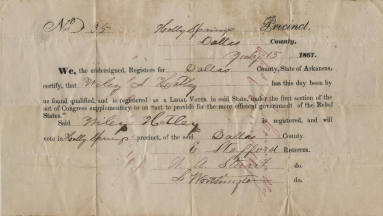 No. 35 Holly Springs Precinct,
Dallas County,
July 15 1867.
We, the undersigned, Registers for Dallas County, State of Arkansas,
certify, that Wiley Hatley has this day been by
us found qualified, and is registered as a LEGAL VOTER in said State, under the first section of the
act of Congress supplementary to an "act to provide for the more efficient government of the Rebel
States."
Said Wiley Hatley is registered, and will
vote in Holly Springs precinct, of the said Dallas County.
Stafford REGISTER.
do.
S Worthington do.